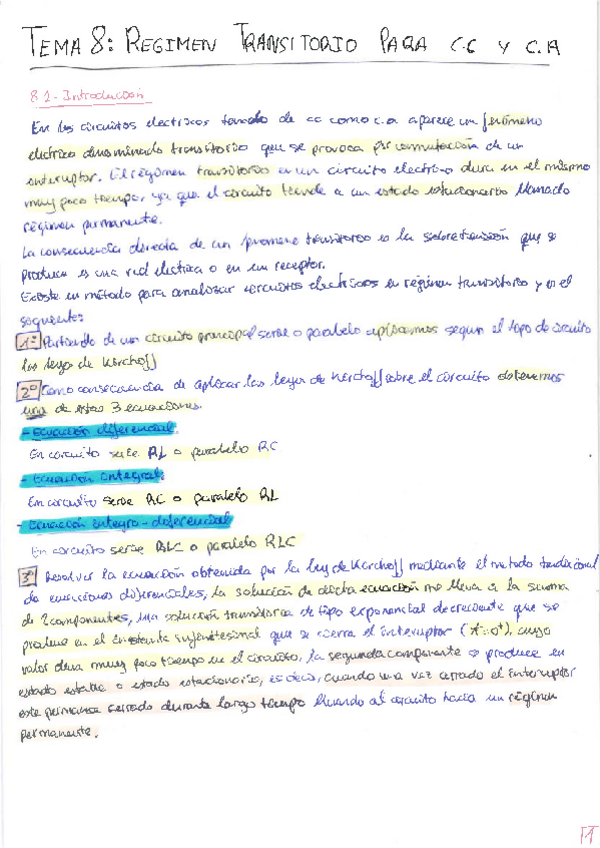 TEMA 8: REGIMEN TRANSITORIO PARA C.C Y C.A
8.1- Introducción
En los circuitos electricos tanto de cc como c.a aparece un fenómeno
electrico denominado transitorio que se provoca por conmutación de un
interruptor. El régimen transitorio en un circuito electrico dura en el mismo
muy poco tiempo ya que el circuito tiende a un estado estacionario llamado
régimen permanente.
La consecuencia directa de un fenomeno transitorio es la sobretensión que se
produce en una red electrica o en un receptor.
Existe un método para analizar circuitos electricos en régimen transitorio y es el
siguiente:
1º Partiendo de un circuito principal serie o paralelo aplicamos segun el tipo de circuito
las leyes de Kirchoff
2º Como consecuencia de aplicar las leyes de Kirchoff sobre el circuito obtenemos
una de estas 3 ecuaciones.
- Ecuación diferencial.
En circuito serie RL o paralelo RC
- Ecuación integral:
En circuito serie RC o paralelo RL
- Ecuación integro-diferencial
En circuito serie RLC o paralelo RLC
3º Resolver la ecuación obtenida por la ley de Kirchoff mediante el metodo tradicional
de ecuaciones diferenciales, la solución de dicha ecuación nos lleva a la suma
de 2 componentes, una solución transitoria de tipo exponencial decreciente que se
produce en el instante infinitesimal que se cierra el interruptor (t=0⁺), cuyo
valor dura muy poco tiempo en el circuito, la segunda componente se produce en
estado estable o estado estacionario, es decir, cuando una vez cerrado el interruptor
este permanece cerrado durante largo tiempo llevando al circuito hacia un régimen
permanente.